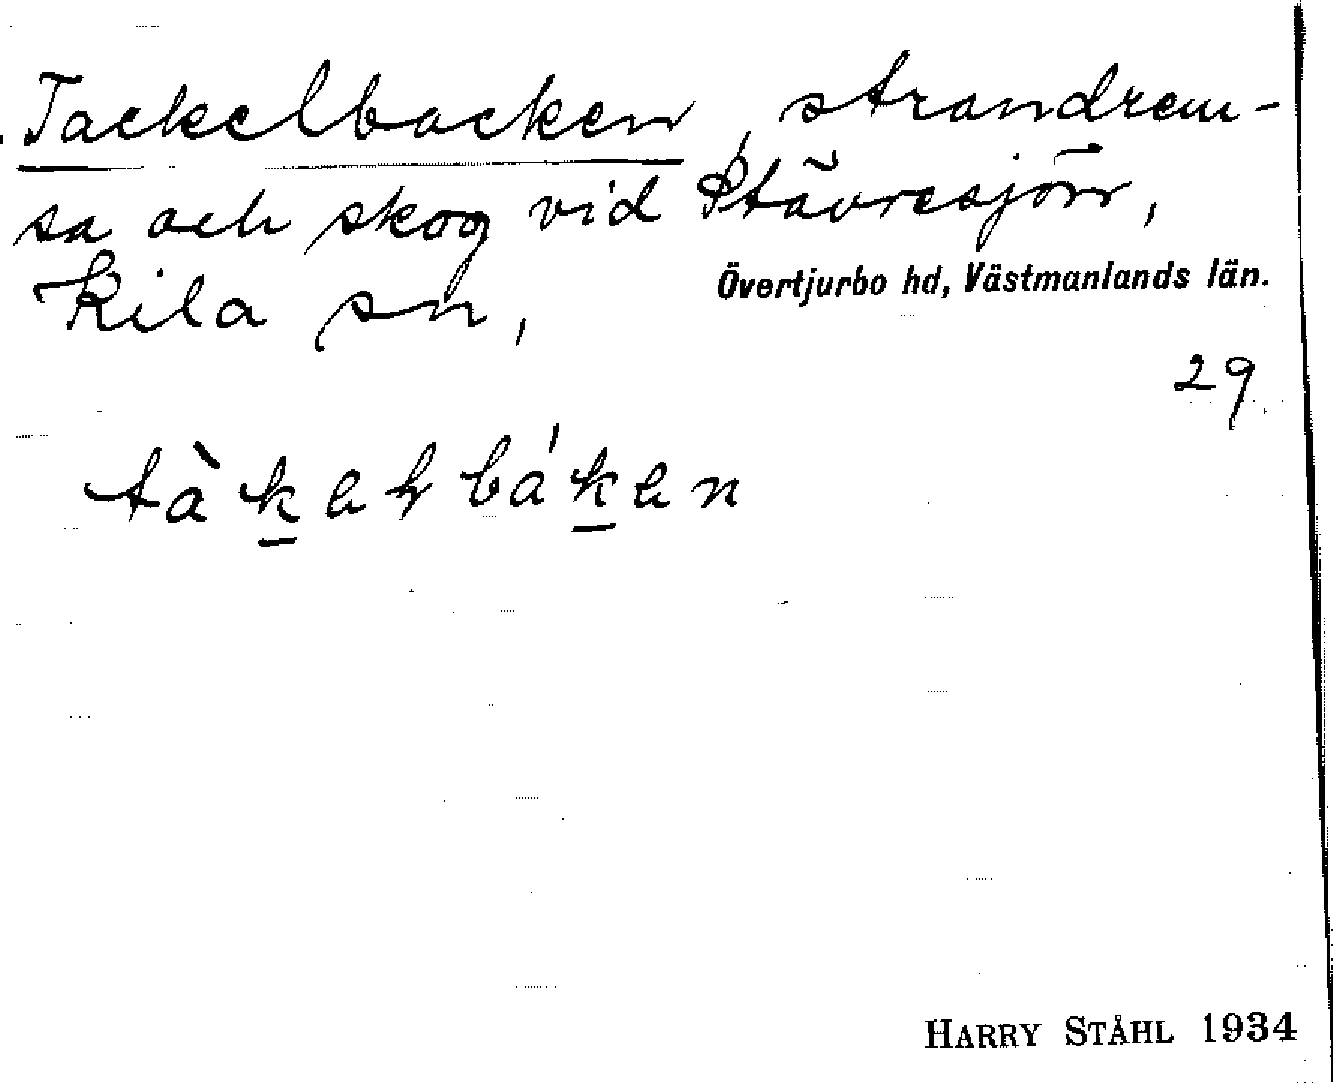 Tackelbacken, strandrem-
sa och skog vid Stävresjön,
Kila sn,
Övertjurbo hd, Västmanlands län.
29
tàkalbákan
HARRY STÅHL 1934